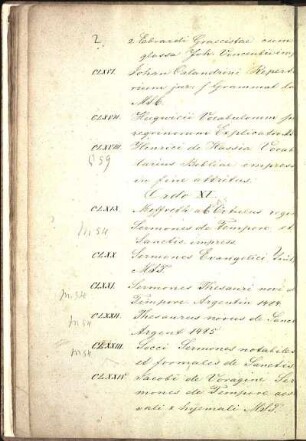 2
2 Ebrardi Graecistae cum
glossa Joh. Vincentii in
CLXVI. Johan Calandrini Repert
orium jur. f Grammat La
MSC.
CLXVII. Huguicii Vocabulorum p
Explicatio MS
CLXVIII. Henrici de Hassia Voca
C 59 bularius Bibliae impress
in fine attritus.
Ordo XI.
CLXIX.
M 54 Sermones de Tempore et
Sanctis impress
CLXX Sermones Evangelici
MST.
CLXXI. Sermones Thesauri novi d
M 54 Tempore Argentin 1484
CLXXII. Thesaurus novus de Sanc
M 54 Argent 1485
CLXXIII. Socci Sermones notabiles
M 54 et formales de Sanctis
CLXXIV. Jacobi de Voragine Ser
mones de Tempore aes
vali & hyemali MST.